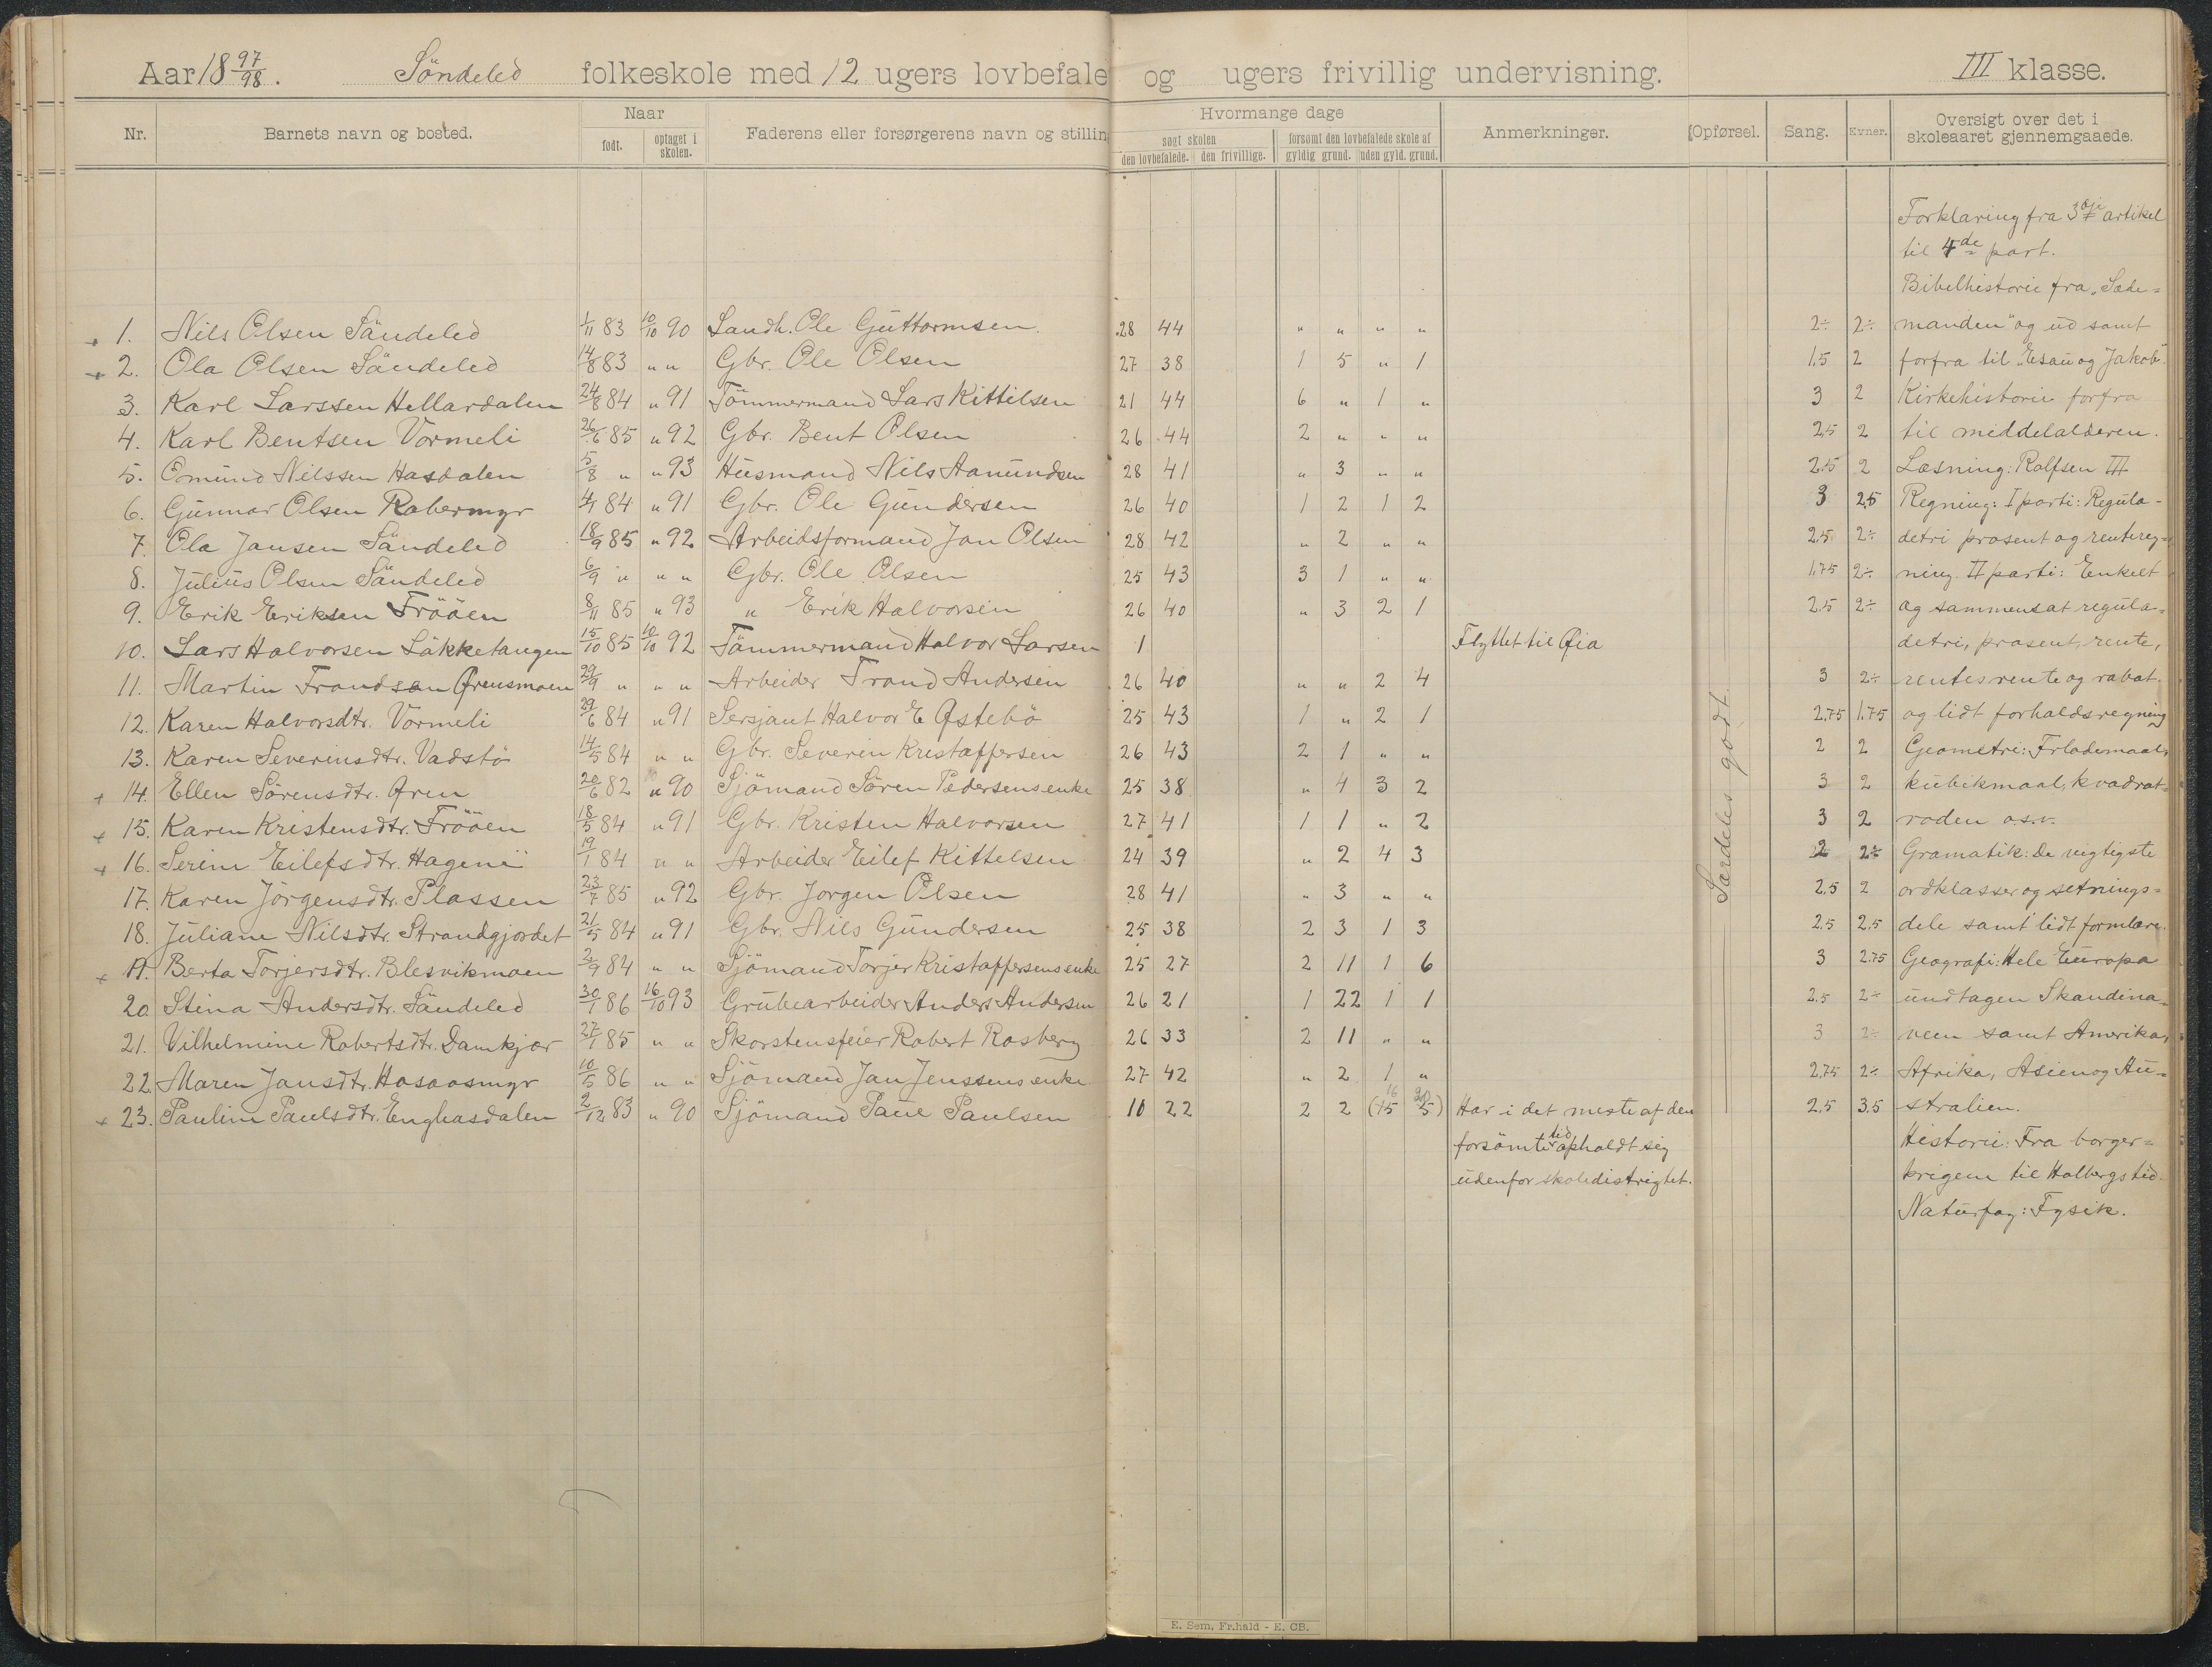 Aar 18 97/98. Söndeled folkeskole med 12 ugers lovbefale og ugers frivillig undervisning. III klasse.
Nr. Barnets navn og bosted. Naar født. optaget i skolen. Faderens eller forsørgerens navn og stillin
Hvormange dage søgt skolen den lovbefalede. den frivillige. forsømt den lovbefalede skole af gyldig grund. uden gyld. grund. Anmerkninger. Opførsel. Sang. Evner. Oversigt over det i skoleaaret gjennemgaaede.
Forklaring fra 3dje artikel
til 4de part.
Bibelhistorie fra „Sæde=
1. Nils Olsen Söndeled 1/11 83 10/10 90 Landh. Ole Guttormsen. 28 44 " " " " 2÷ 2÷ manden" og ud samt
2. Ola Olsen Söndeled 14/8 83 " " Gbr. Ole Olsen 27 38 1 5 " 1 1,5 2 forfra til „Esau og Jakob".
3. Karl Larssen Hellardalen 24/8 84 " 91 Tömmermand Lars Kittilsen 21 44 6 " 1 " 3 2 Kirkehistorie forfra
4. Karl Bentsen Vormeli 26/6 85 " 92 Gbr. Bent Olsen 26 44 2 " " " 2,5 2 til middelalderen.
5. Omund Nilssen Hasdalen 5/8 " " 93 Husmand Nils Aanundsen 28 41 " 3 " " 2,5 2 Læsning: Rolfsen III
6. Gunnar Olsen Robermyr 4/1 84 " 91 Gbr. Ole Gundersen 26 40 1 2 1 2 3 2,5 Regning: I parti: Regula-
7. Ola Jansen Söndeled 18/9 85 " 92 Arbeidsformand Jan Olsen 28 42 " 2 " " 2,5 2÷ detri prosent og rentereg=
8. Julius Olsen Söndeled 6/9 " " " Gbr. Ole Olsen 25 43 3 1 " " 1,75 2÷ ning. II parti: Enkelt
9. Erik Eriksen Frööen 8/11 85 " 93 " Erik Halvorsen 26 40 " 3 2 1 2,5 2÷ og sammensat regula=
10. Lars Halvorsen Lökketangen 15/10 85 10/10 92 Tömmermand Halvor Larsen 1 Flyttet til Øia detri, prosent, rente,
11. Martin Trondsen Ørensmoen 29/9 " " " Arbeider Trond Andersen 26 40 " " 2 4 3 2÷ rentesrente og rabat.
12. Karen Halvorsdtr. Vormeli 29/6 84 " 91 Sersjant Halvor E Østebö 25 43 1 " 2 1 2,75 1,75 og lidt forholdsregning
13. Karen Severinsdtr. Vadstö 14/5 84 " " Gbr. Severin Kristoffersen 26 43 2 1 " " 2 2 Geometri: Flademaal,
14. Ellen Sörensdtr. Øren 20/6 82 " 90 Sjömand Sören Pedersens enke 25 38 " 4 3 2 3 2 kubikmaal, kvadrat=
15. Karen Kristensdtr. Frööen 18/5 84 " 91 Gbr. Kristen Halvorsen 27 41 1 1 " 2 3 2 roden o.s.v.
16. Serine Eilefsdtr. Hagene 19/1 84 " " Arbeider Eilef Kittelsen 24 39 " 2 4 3 2 2÷ Gramatik: De vigtigste
17. Karen Jörgensdtr. Plassen 23/7 85 " 92 Gbr. Jorgen Olsen 28 41 " 3 " " 2,5 2 ordklasser og setnings=
18. Juliane Nilsdtr. Strandgjordet 21/5 84 " 91 Gbr. Nils Gundersen 25 38 2 3 1 3 2,5 2,5 dele samt lidt formlære.
19. Berta Torjersdtr. Blesvikmoen 2/9 84 " " Sjömand Torjer Kristoffersens enke 25 27 2 11 1 6 3 2,75 Geografi: Hele Europa
20. Stina Andersdtr. Söndeled 30/1 86 16/10 93 Grubearbeider Anders Andersen 26 21 1 22 1 1 2,5 2÷ undtagen Skandina=
21. Vilhelmine Robertsdtr. Damkjær 27/1 85 " " Skorstensfeier Robert Rosberg 26 33 2 11 " " 3 2÷ vien samt Amerika,
22. Maren Jansdtr. Hasaasmyr 10/5 86 " " Sjömand Jan Jenssens enke 27 42 " 2 1 " 2,75 2÷ Afrika, Asien og Au=
23. Pauline Paulsdtr. Enghasdalen 2/12 83 " 90 Sjömand Paul Paulsen 10 22 2 2 Har i det meste af den 2,5 3,5 stralien.
forsömte tid opholdt sig Historie: Fra borger=
udenfor skoledistrigtet. krigene til Holbergs tid.
Naturfag: Fysik.
Særdeles godt
E. Sem, Fr.hald - E. CB.